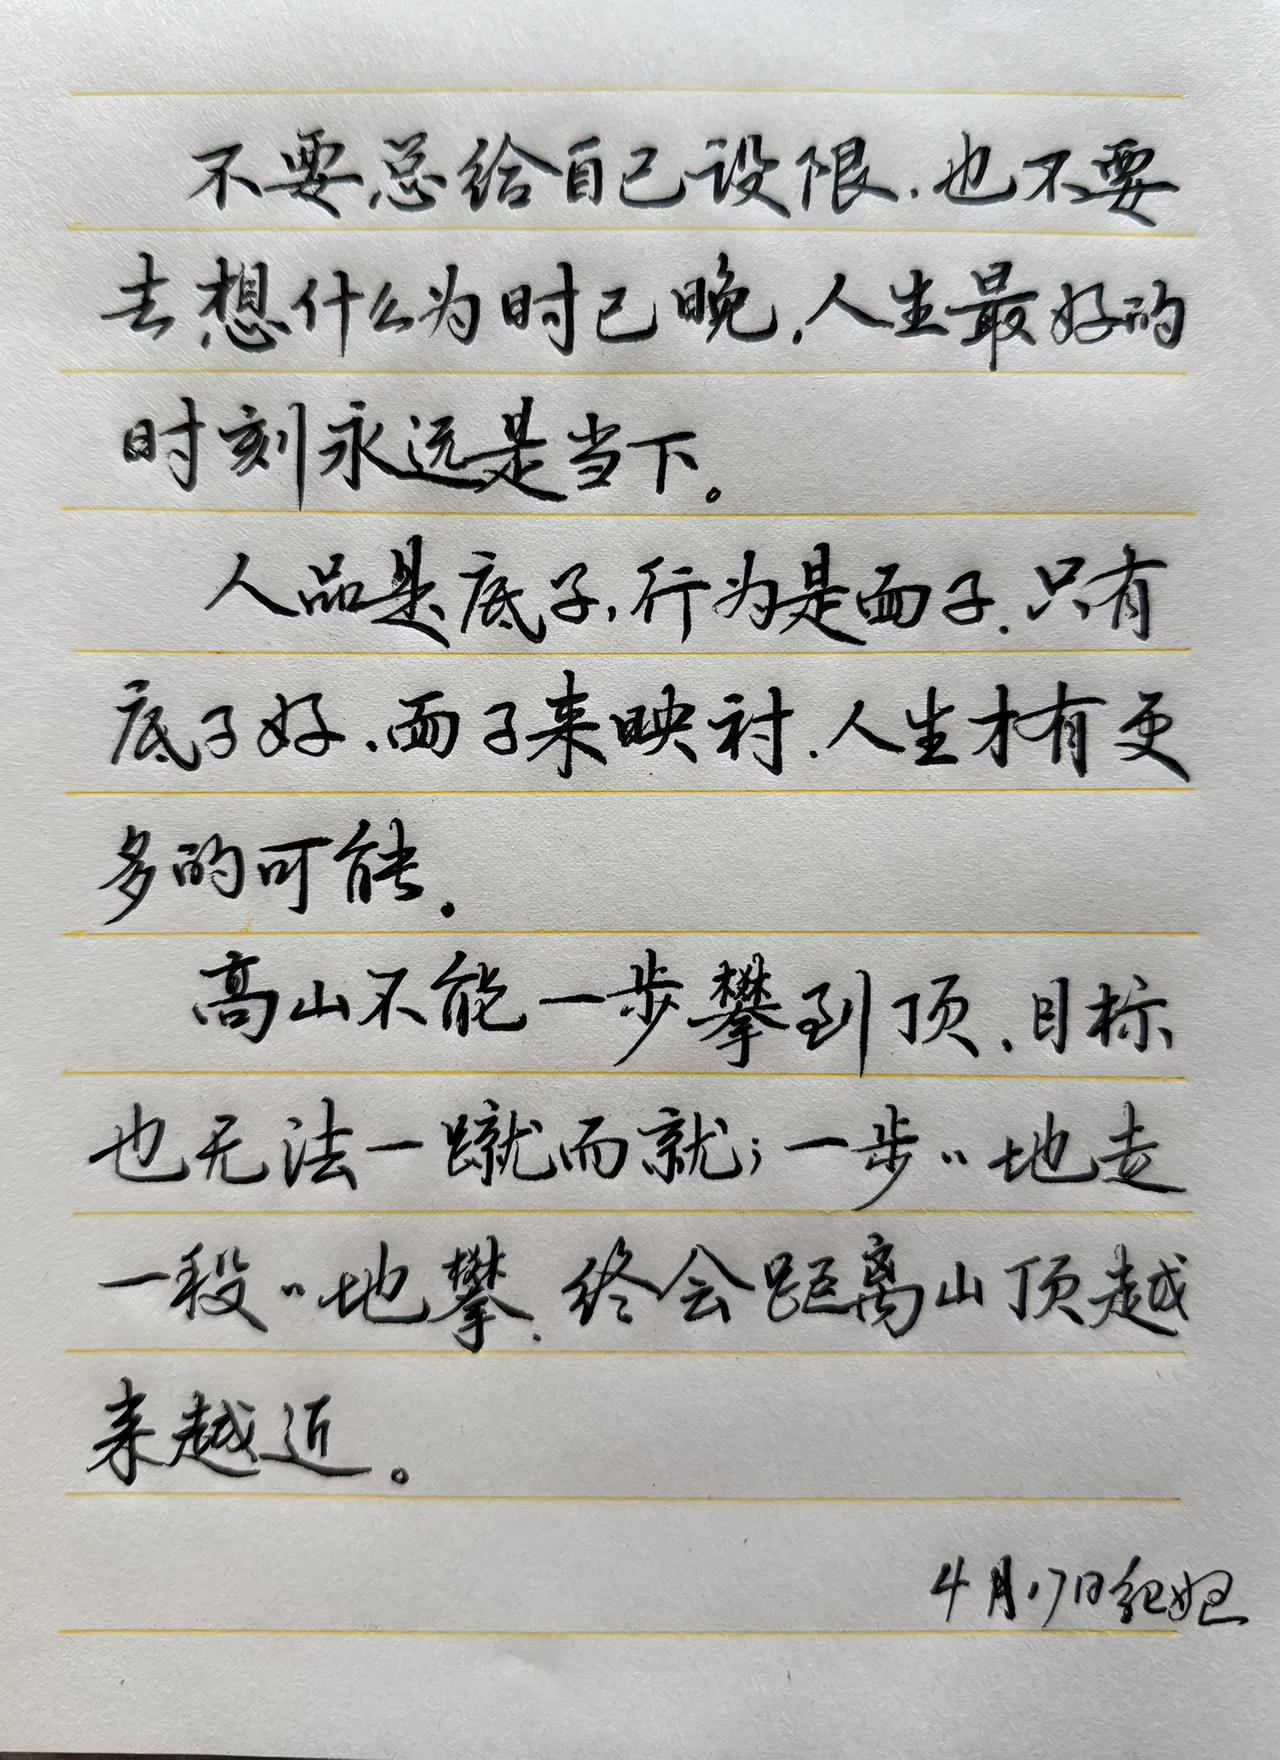 不要总给自己设限.也不要
去想什么为时已晚.人生最好的
时刻永远是当下。
人品是底子,行为是面子.只有
底子好.面子来映衬.人生才有更
多的可能.
高山不能一步攀到顶.目标
也无法一蹴而就;一步〃地走
一段〃地攀.终会距离山顶越
来越近。
4月17日